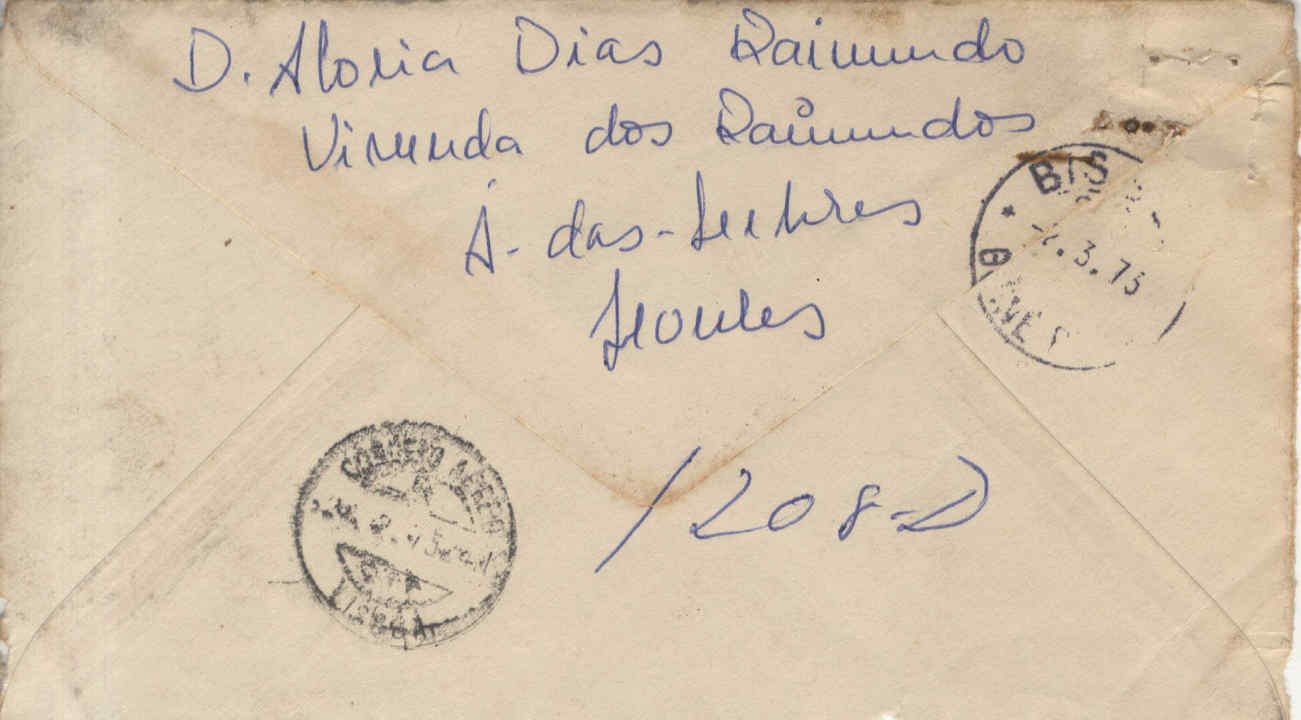 D. Gloria Dias Raimundo
Vivenda dos Raimundos
À-das-Lebres
Loures
BIS
-4.3.73
1208-D
CORREIO AEREO
LISBOA